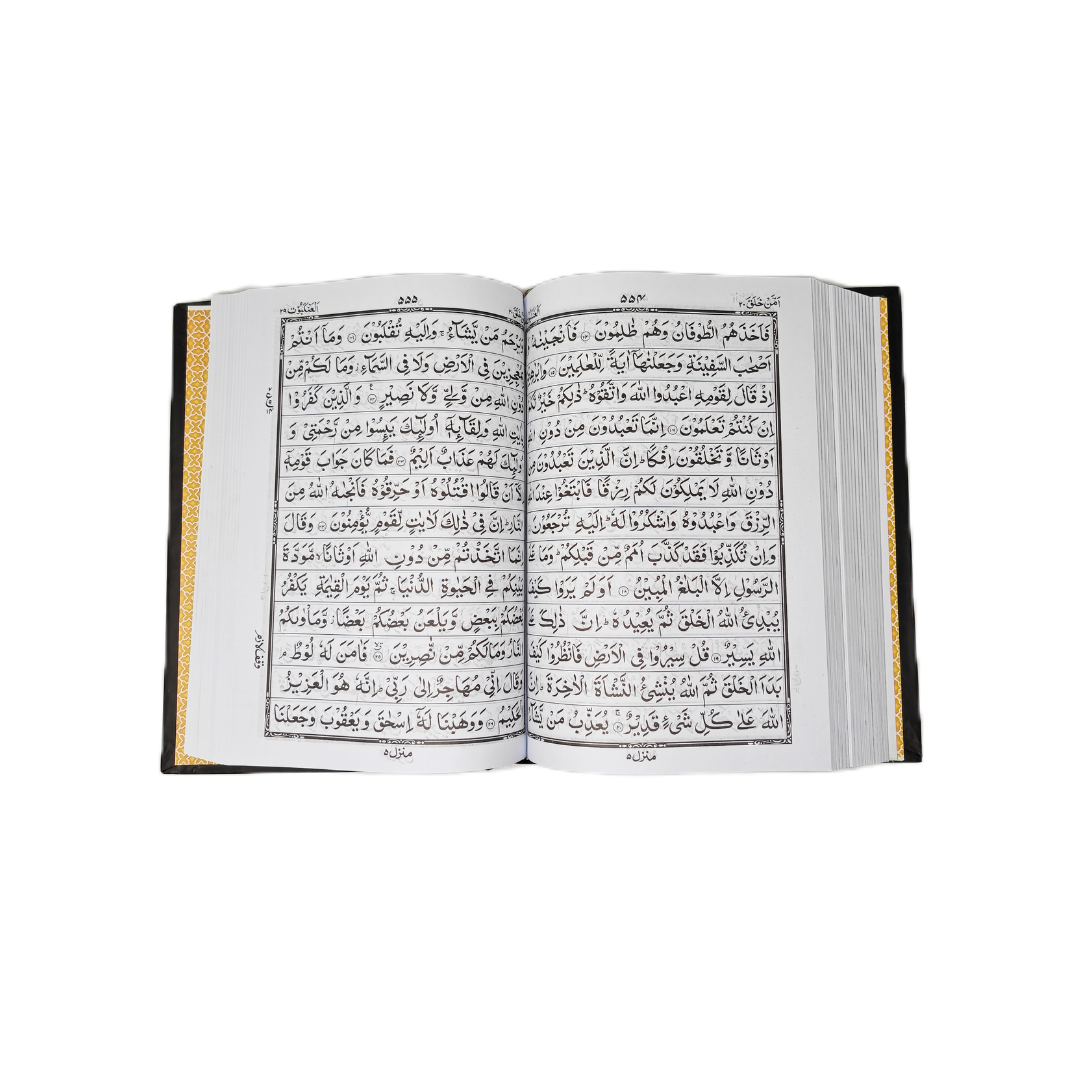 اَمَّنْ خَلَقَ ۲۰
۵۵۴
فَاَخَذَهُمُ الطُّوْفَانُ وَهُمْ ظٰلِمُوْنَ ﴿۱۴﴾ فَاَنْجَيْنٰهُ
اَصْحٰبَ السَّفِيْنَةِ وَجَعَلْنٰهَاۤ اٰيَةً لِّلْعٰلَمِيْنَ ﴿۱۵﴾
اِذْ قَالَ لِقَوْمِهِ اعْبُدُوا اللّٰهَ وَاتَّقُوْهُ ؕ ذٰلِكُمْ خَيْرٌ
اِنْ كُنْتُمْ تَعْلَمُوْنَ ﴿۱۶﴾ اِنَّمَا تَعْبُدُوْنَ مِنْ دُوْنِ
اَوْثَانًا وَّتَخْلُقُوْنَ اِفْكًا ؕ اِنَّ الَّذِيْنَ تَعْبُدُوْنَ
دُوْنِ اللّٰهِ لَا يَمْلِكُوْنَ لَكُمْ رِزْقًا فَابْتَغُوْا عِنْدَ
الرِّزْقَ وَاعْبُدُوْهُ وَاشْكُرُوْا لَهٗ ؕ اِلَيْهِ تُرْجَعُوْنَ
وَاِنْ تُكَذِّبُوْا فَقَدْ كَذَّبَ اُمَمٌ مِّنْ قَبْلِكُمْ ؕ وَمَا
الرَّسُوْلِ اِلَّا الْبَلٰغُ الْمُبِيْنُ ﴿۱۸﴾ اَوَلَمْ يَرَوْا
يُبْدِئُ اللّٰهُ الْخَلْقَ ثُمَّ يُعِيْدُهٗ ؕ اِنَّ ذٰلِكَ
اللّٰهِ يَسِيْرٌ ﴿۱۹﴾ قُلْ سِيْرُوْا فِى الْاَرْضِ فَانْظُرُوْا
بَدَاَ الْخَلْقَ ثُمَّ اللّٰهُ يُنْشِئُ النَّشْاَةَ الْاٰخِرَةَ ؕ
اللّٰهَ عَلٰى كُلِّ شَىْءٍ قَدِيْرٌ ﴿۲۰﴾ يُعَذِّبُ مَنْ
منزل ۵
۵۵۵
العنكبوت ۲۹
مَنْ يَّشَآءُ ۚ وَاِلَيْهِ تُقْلَبُوْنَ ﴿۲۱﴾ وَمَاۤ اَنْتُمْ
فِى الْاَرْضِ وَلَا فِى السَّمَآءِ ؗ وَمَا لَكُمْ مِّنْ
دُوْنِ اللّٰهِ مِنْ وَّلِىٍّ وَّلَا نَصِيْرٍ ﴿۲۲﴾ وَالَّذِيْنَ كَفَرُوْا
اللّٰهِ وَلِقَآئِهٖۤ اُولٰٓئِكَ يَئِسُوْا مِنْ رَّحْمَتِىْ وَ
لَهُمْ عَذَابٌ اَلِيْمٌ ﴿۲۳﴾ فَمَا كَانَ جَوَابَ قَوْمِهٖۤ
اَنْ قَالُوا اقْتُلُوْهُ اَوْ حَرِّقُوْهُ فَاَنْجٰىهُ اللّٰهُ مِنَ
النَّارِ ؕ اِنَّ فِىْ ذٰلِكَ لَاٰيٰتٍ لِّقَوْمٍ يُّؤْمِنُوْنَ ﴿۲۴﴾ وَقَالَ
اِنَّمَا اتَّخَذْتُمْ مِّنْ دُوْنِ اللّٰهِ اَوْثَانًا ۙ مَّوَدَّةَ
بَيْنِكُمْ فِى الْحَيٰوةِ الدُّنْيَا ۚ ثُمَّ يَوْمَ الْقِيٰمَةِ يَكْفُرُ
بَعْضُكُمْ بِبَعْضٍ وَّيَلْعَنُ بَعْضُكُمْ بَعْضًا ؗ وَّمَاْوٰىكُمُ
النَّارُ وَمَا لَكُمْ مِّنْ نّٰصِرِيْنَ ﴿۲۵﴾ فَاٰمَنَ لَهٗ لُوْطٌ ۘ
وَقَالَ اِنِّىْ مُهَاجِرٌ اِلٰى رَبِّىْ ؕ اِنَّهٗ هُوَ الْعَزِيْزُ
الْحَكِيْمُ ﴿۲۶﴾ وَوَهَبْنَا لَهٗۤ اِسْحٰقَ وَيَعْقُوْبَ وَجَعَلْنَا
منزل ۵